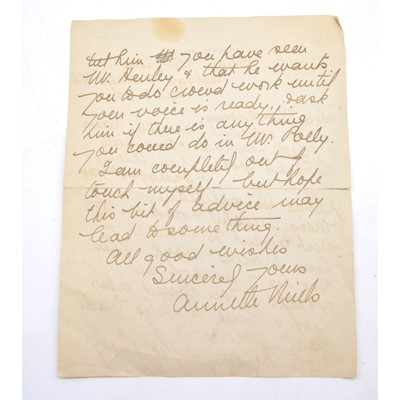 him you have seen
Mr. Henley & that he wants
you to do crowd work until
your voice is ready, & ask
him if there is anything
you could do in Mr. Polly.
I am completely out of
touch myself – but hope
this bit of advice may
lead to something.
All good wishes
Sincerely yours
Annette Mills